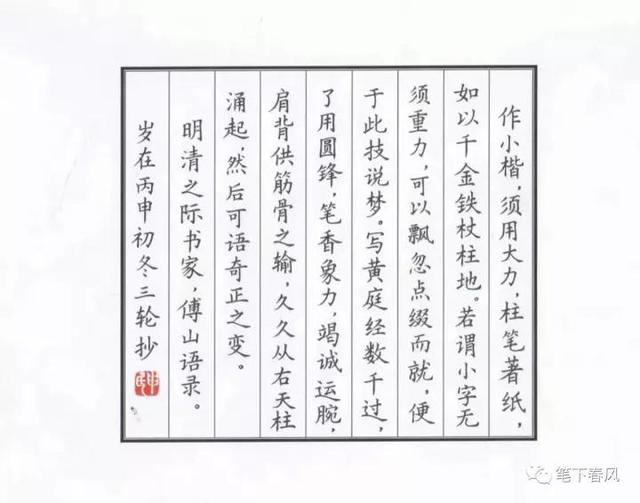 作小楷，须用大力，柱笔著纸，
如以千金铁杖柱地。若谓小字无
须重力，可以飘忽点缀而就，便
于此技说梦。写黄庭经数千过，
了用圆锋，笔香象力，竭诚运腕，
肩背供筋骨之输，久久从右天柱
涌起，然后可语奇正之变。
明清之际书家，傅山语录。
岁在丙申初冬三轮抄
笔下春风